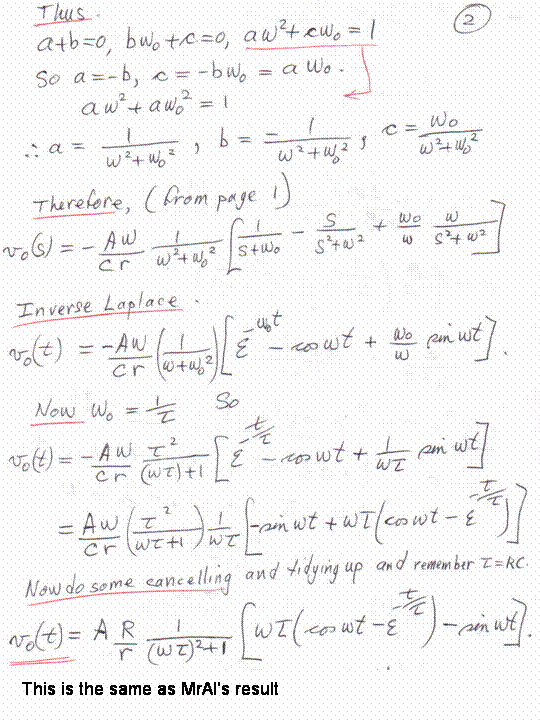 Thus. ②
a+b=0, bω₀+c=0, aω²+cω₀=1
So a=-b, c=-bω₀ = aω₀.
aω²+aω₀²=1
∴ a = 1/(ω²+ω₀²), b = -1/(ω²+ω₀²), c = ω₀/(ω²+ω₀²)
Therefore, (from page 1)
v₀(s) = - Aω/cr 1/(ω²+ω₀²) [1/(s+ω₀) - s/(s²+ω²) + ω₀/ω ω/(s²+ω²)]
Inverse Laplace.
v₀(t) = -Aω/cr (1/(ω+ω₀²)) [ε^(-ω₀t) - cos ωt + ω₀/ω sin ωt].
Now ω₀ = 1/τ So
v₀(t) = -Aω/cr τ²/((ωτ)+1) [ε^(-t/τ) - cos ωt + 1/ωτ sin ωt]
= Aω/cr (τ²/(ωτ+1)) 1/ωτ [-sin ωt + ωτ(cos ωt - ε^(-t/τ))]
Now do some cancelling and tidying up and remember τ=RC.
v₀(t) = A R/r 1/((ωτ)²+1) [ωτ(cos ωt - ε^(-t/τ)) - sin ωt].
This is the same as MrAl's result